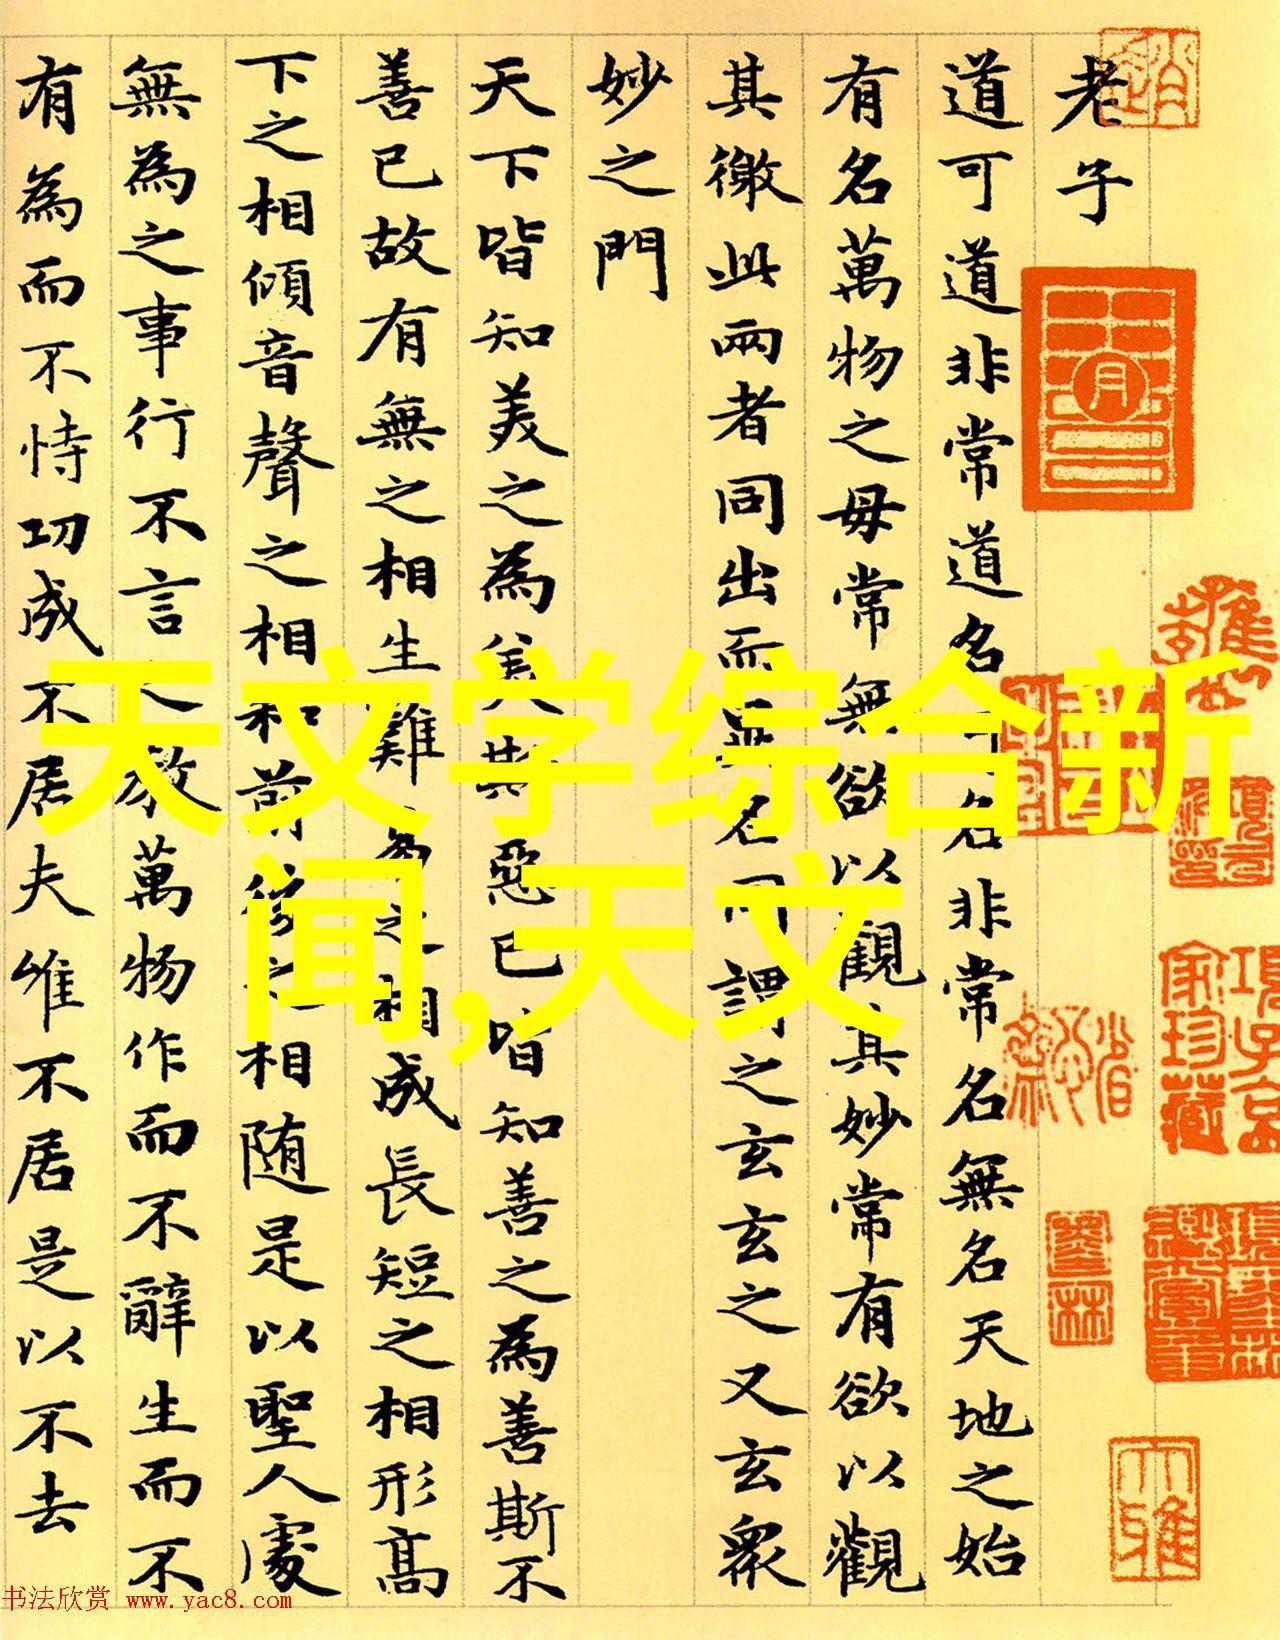 老子
道可道非常道名可名非常名無名天地之始
有名萬物之母常無欲以觀其妙常有欲以觀
其徼此兩者同出而異名同謂之玄玄之又玄衆
妙之門
天下皆知美之為美斯惡已皆知善之為善斯不
善已故有無之相生難易之相成長短之相形高
下之相傾音聲之相和前後之相随是以聖人處
無為之事行不言之教萬物作而不辭生而不
有為而不恃功成不居夫唯不居是以不去
天文学综合新
闻,天文
項子京
家珍藏
书法欣赏 www.yac8.com